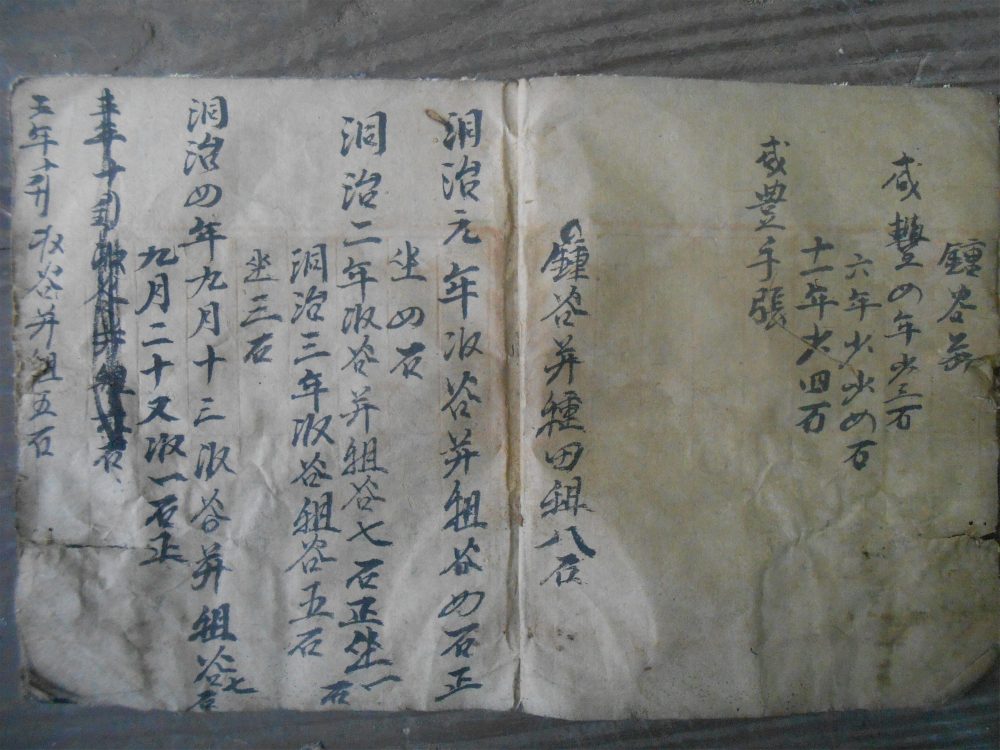 鍾谷并
咸豐四年少三石
六年少少四石
十一年少四石
咸豊手張
鍾谷并種田租八石
洞治元年收谷并租谷四石正
坐四石
洞治二年收谷并租谷七石正坐一石
洞治三年收谷租谷五石
坐三石
洞治四年九月十三收谷并租谷七石
九月二十又收一石正
五年十月收谷并租五石